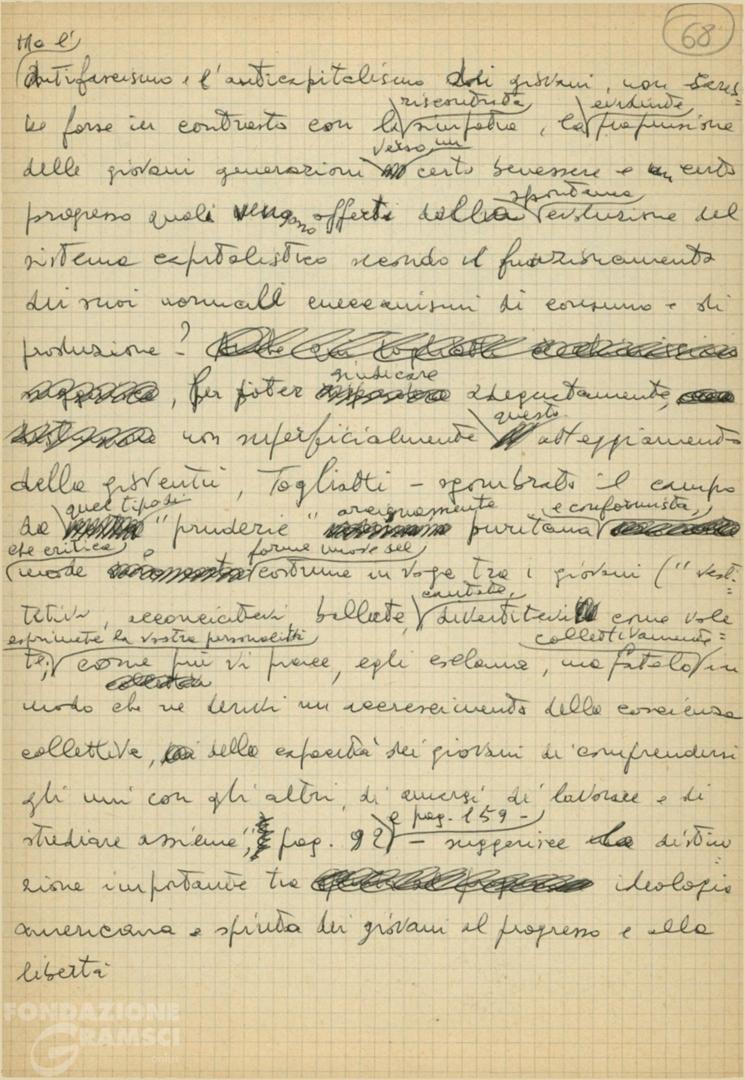 68
Ma l'
antifascismo e l'anticapitalismo dei giovani, non sareb=
riscontrata evidente
be forse in contrasto con la simpatia, la propensione
verso un
delle giovani generazioni certo benessere e un certo
spontanea
progresso quali vengono offerti dalla evoluzione del
sistema capitalistico secondo il funzionamento
dei suoi normali meccanismi di consumo e di
produzione?
giudicare
, per poter adeguatamente,
questo
non superficialmente atteggiamento
della gioventù, Togliatti – sgombrato il campo
quel tipo di arcignamente e conformista,
da "pruderie" puritana
che critica forme nuove del
mode e costume in voga tra i giovani ("vest=
cantate,
titevi, acconciatevi, ballate, divertitevi come vole
esprimete la vostra personalità collettivamente=
te, come più vi piace, egli esclama, ma fatelo in
modo che ne derivi un accrescimento della coscienza
collettiva, della capacità dei giovani di comprendersi
gli uni con gli altri, di amarsi di lavorare e di
e pag. 159 –
studiare assieme", pag. 92 – suggerisce la distin=
zione importante tra ideologia
americana e spinta dei giovani al progresso e alla
libertà
FONDAZIONE
GRAMSCI